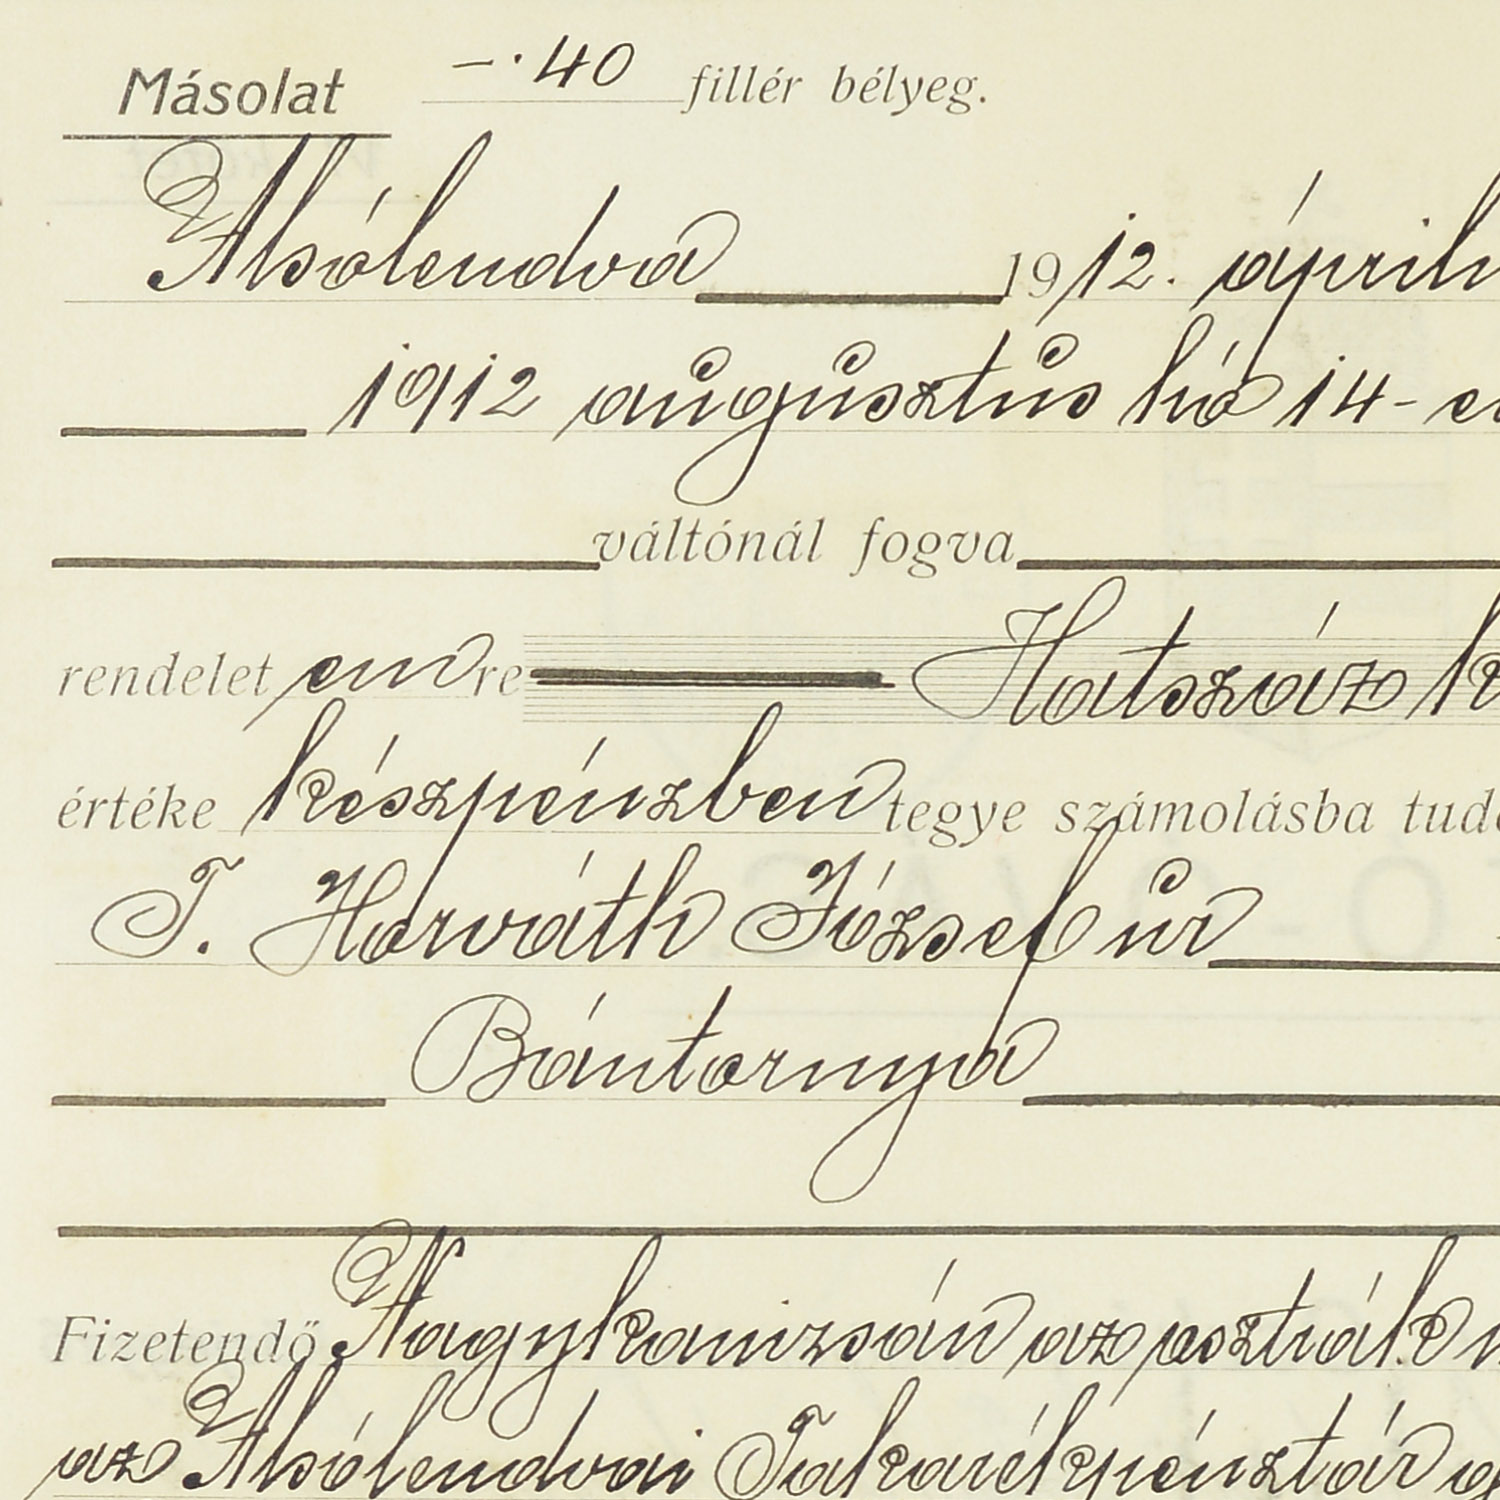 Másolat —·40 fillér bélyeg.
Alsólendva 1912. április
1912 augusztus hó 14-
váltónál fogva
rendelet em re Hatszáz
értéke készpénzben tegye számolásba
T. Horváth József úr
Bántornya
Fizetendő Nagykanizsán az osztrák
az Alsólendvai Takarékpénztár